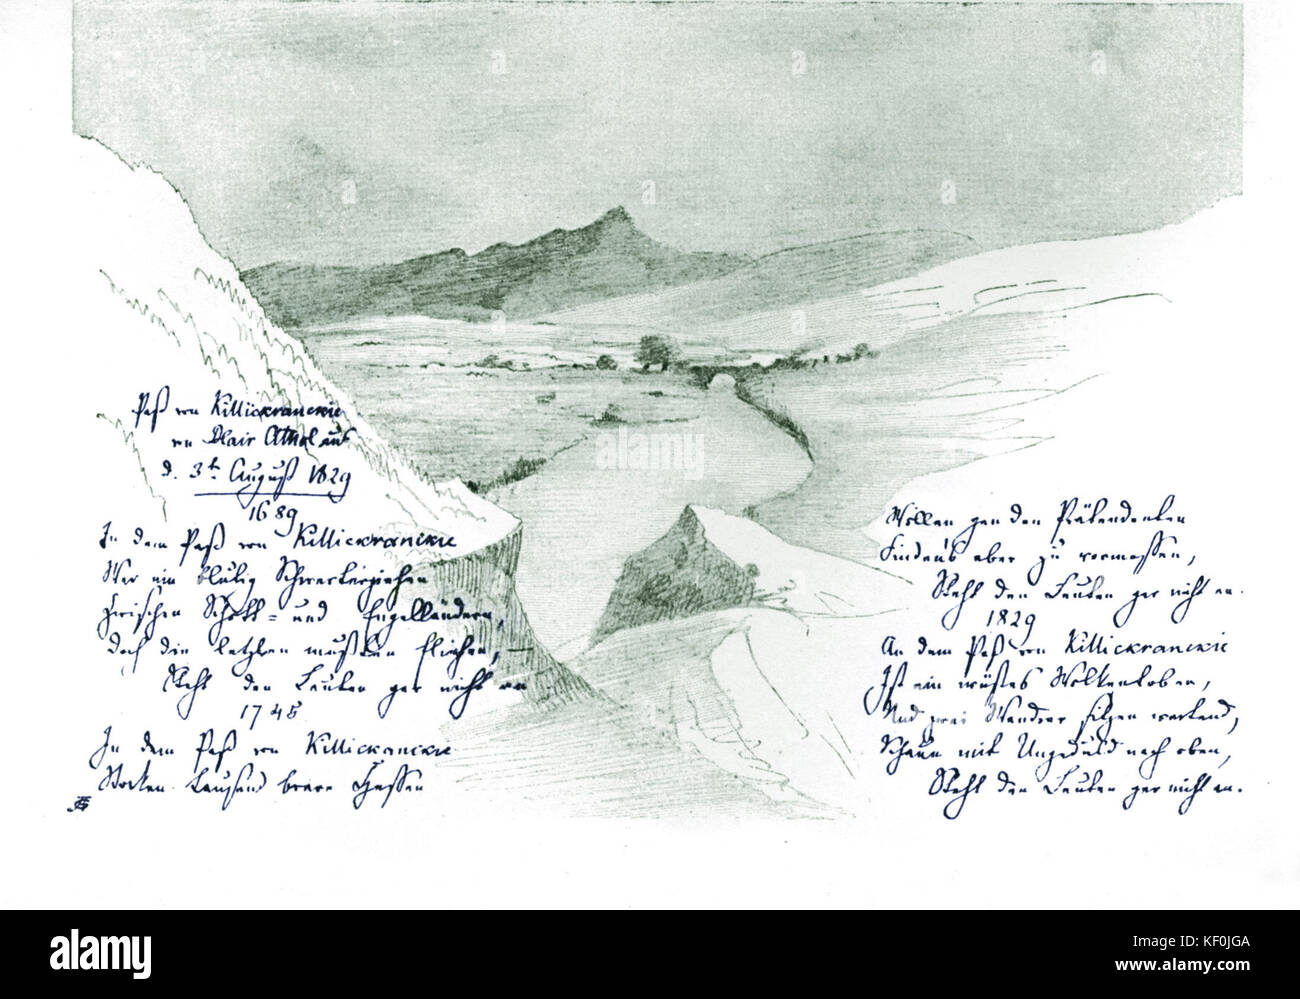 Paß von Killickrankie
von Blair Athol aus
d. 3t August 1829
1689
In dem Paß von Killiekrankie
War ein blutig Schwerterziehen
Zwischen Schott- und Engelländern,
doch die letzten mußten fliehen, –
Steht den Leuten gar nicht an
1745
In dem Paß von Killickrankie
Stecken tausend brave Hessen
Wollen gen den Prätendenten
Finden's aber zu vermessen,
Steht den Leuten gar nicht an.
1829
An dem Paß von Killickrankie
Ist ein wüstes Wolkentoben,
Und zwei Wandrer sitzen wartend,
Schaun mit Ungeduld nach oben,
Steht den Leuten gar nicht an.
alamy
Image ID: KF0JGA
www.alamy.com